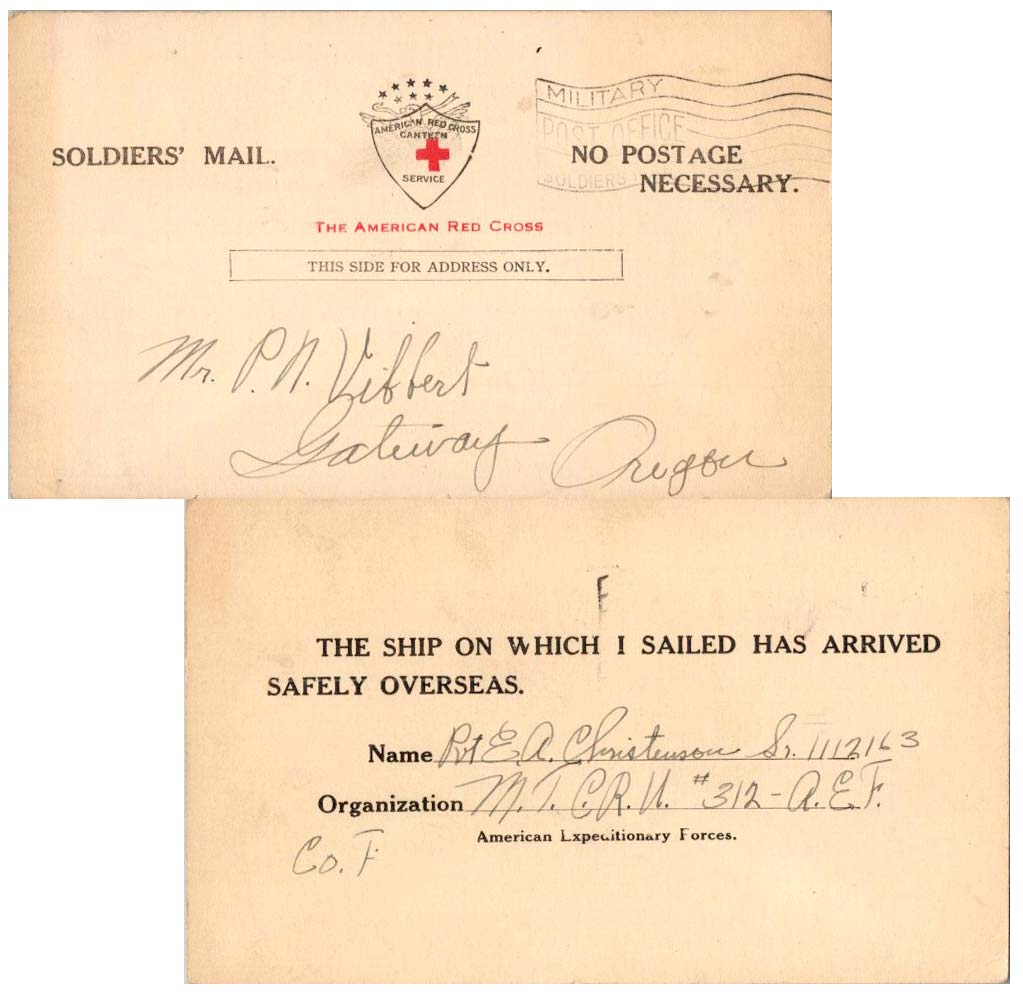 MILITARY
POST OFFICE
SOLDIERS
AMERICAN RED CROSS
CANTEEN
SERVICE
SOLDIERS' MAIL.
NO POSTAGE
NECESSARY.
THE AMERICAN RED CROSS
THIS SIDE FOR ADDRESS ONLY.
Mr. P. N. Vibbert
Gateway Oregon
THE SHIP ON WHICH I SAILED HAS ARRIVED
SAFELY OVERSEAS.
Name Pvt E. A. Christenson Sr. 1112163
Organization M. T. C. R. U. #312 - A. E. F.
American Expeditionary Forces.
Co. F